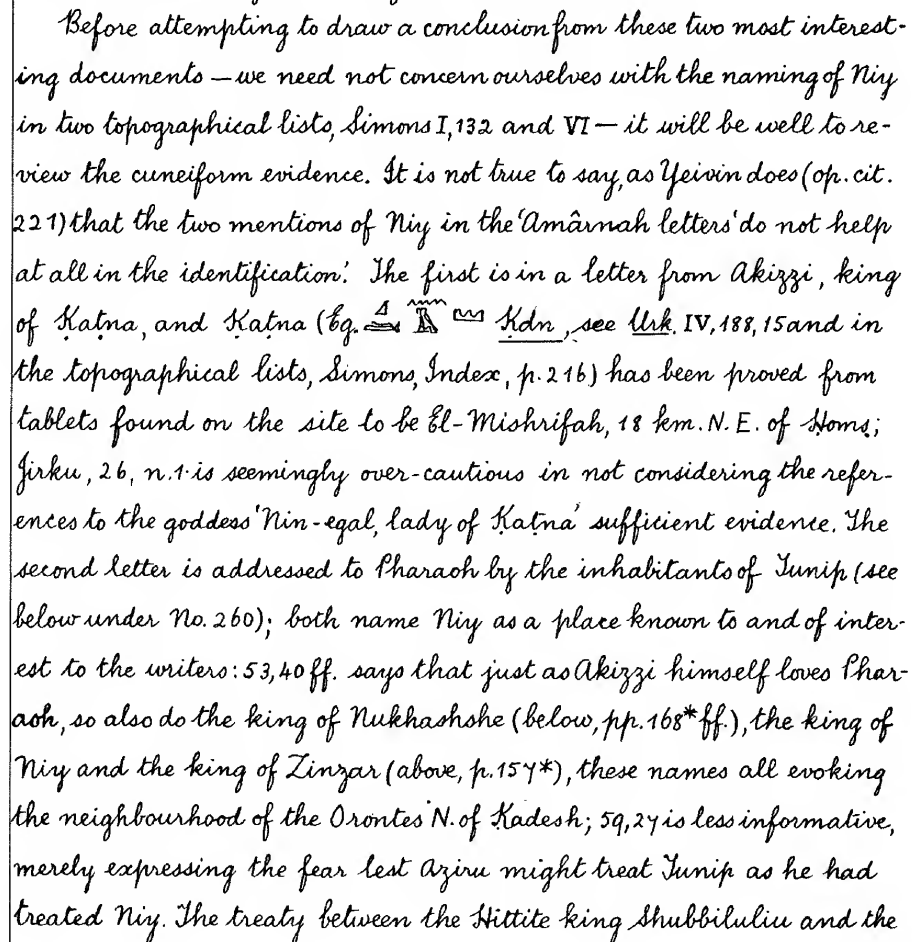 Before attempting to draw a conclusion from these two most interest-
ing documents — we need not concern ourselves with the naming of Niy
in two topographical lists, Simons I, 132 and VI — it will be well to re-
view the cuneiform evidence. It is not true to say, as Yeivin does (op. cit.
221) that the two mentions of Niy in the 'Amârnah letters 'do not help
at all in the identification'. The first is in a letter from Akizzi, king
of Ḳaṭna, and Ḳaṭna (Eg. Ḳdn, see Urk. IV, 188, 15 and in
the topographical lists, Simons, Index, p. 216) has been proved from
tablets found on the site to be El-Mishrifah, 18 km. N.E. of Ḥomṣ;
Jirku, 26, n. 1. is seemingly over-cautious in not considering the refer-
ences to the goddess 'Nin-egal, lady of Ḳaṭna' sufficient evidence. The
second letter is addressed to Pharaoh by the inhabitants of Tunip (see
below under No. 260); both name Niy as a place known to and of inter-
est to the writers: 53, 40 ff. says that just as Akizzi himself loves Phar-
aoh, so also do the king of Nukhashshe (below, pp. 168* ff.), the king of
Niy and the king of Zinzar (above, p. 157*), these names all evoking
the neighbourhood of the Orontes N. of Ḳadesh; 59, 27 is less informative,
merely expressing the fear lest Aziru might treat Tunip as he had
treated Niy. The treaty between the Hittite king Shubbiluliu and the